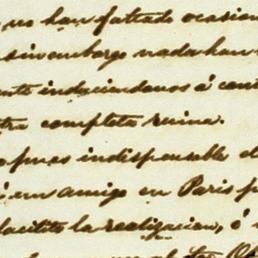 no han faltado ocasion
sin embargo nada han
induciendonos á cont
completa ruina.
pues indispensable el
un amigo en Paris p
facilite la realizacion, ó